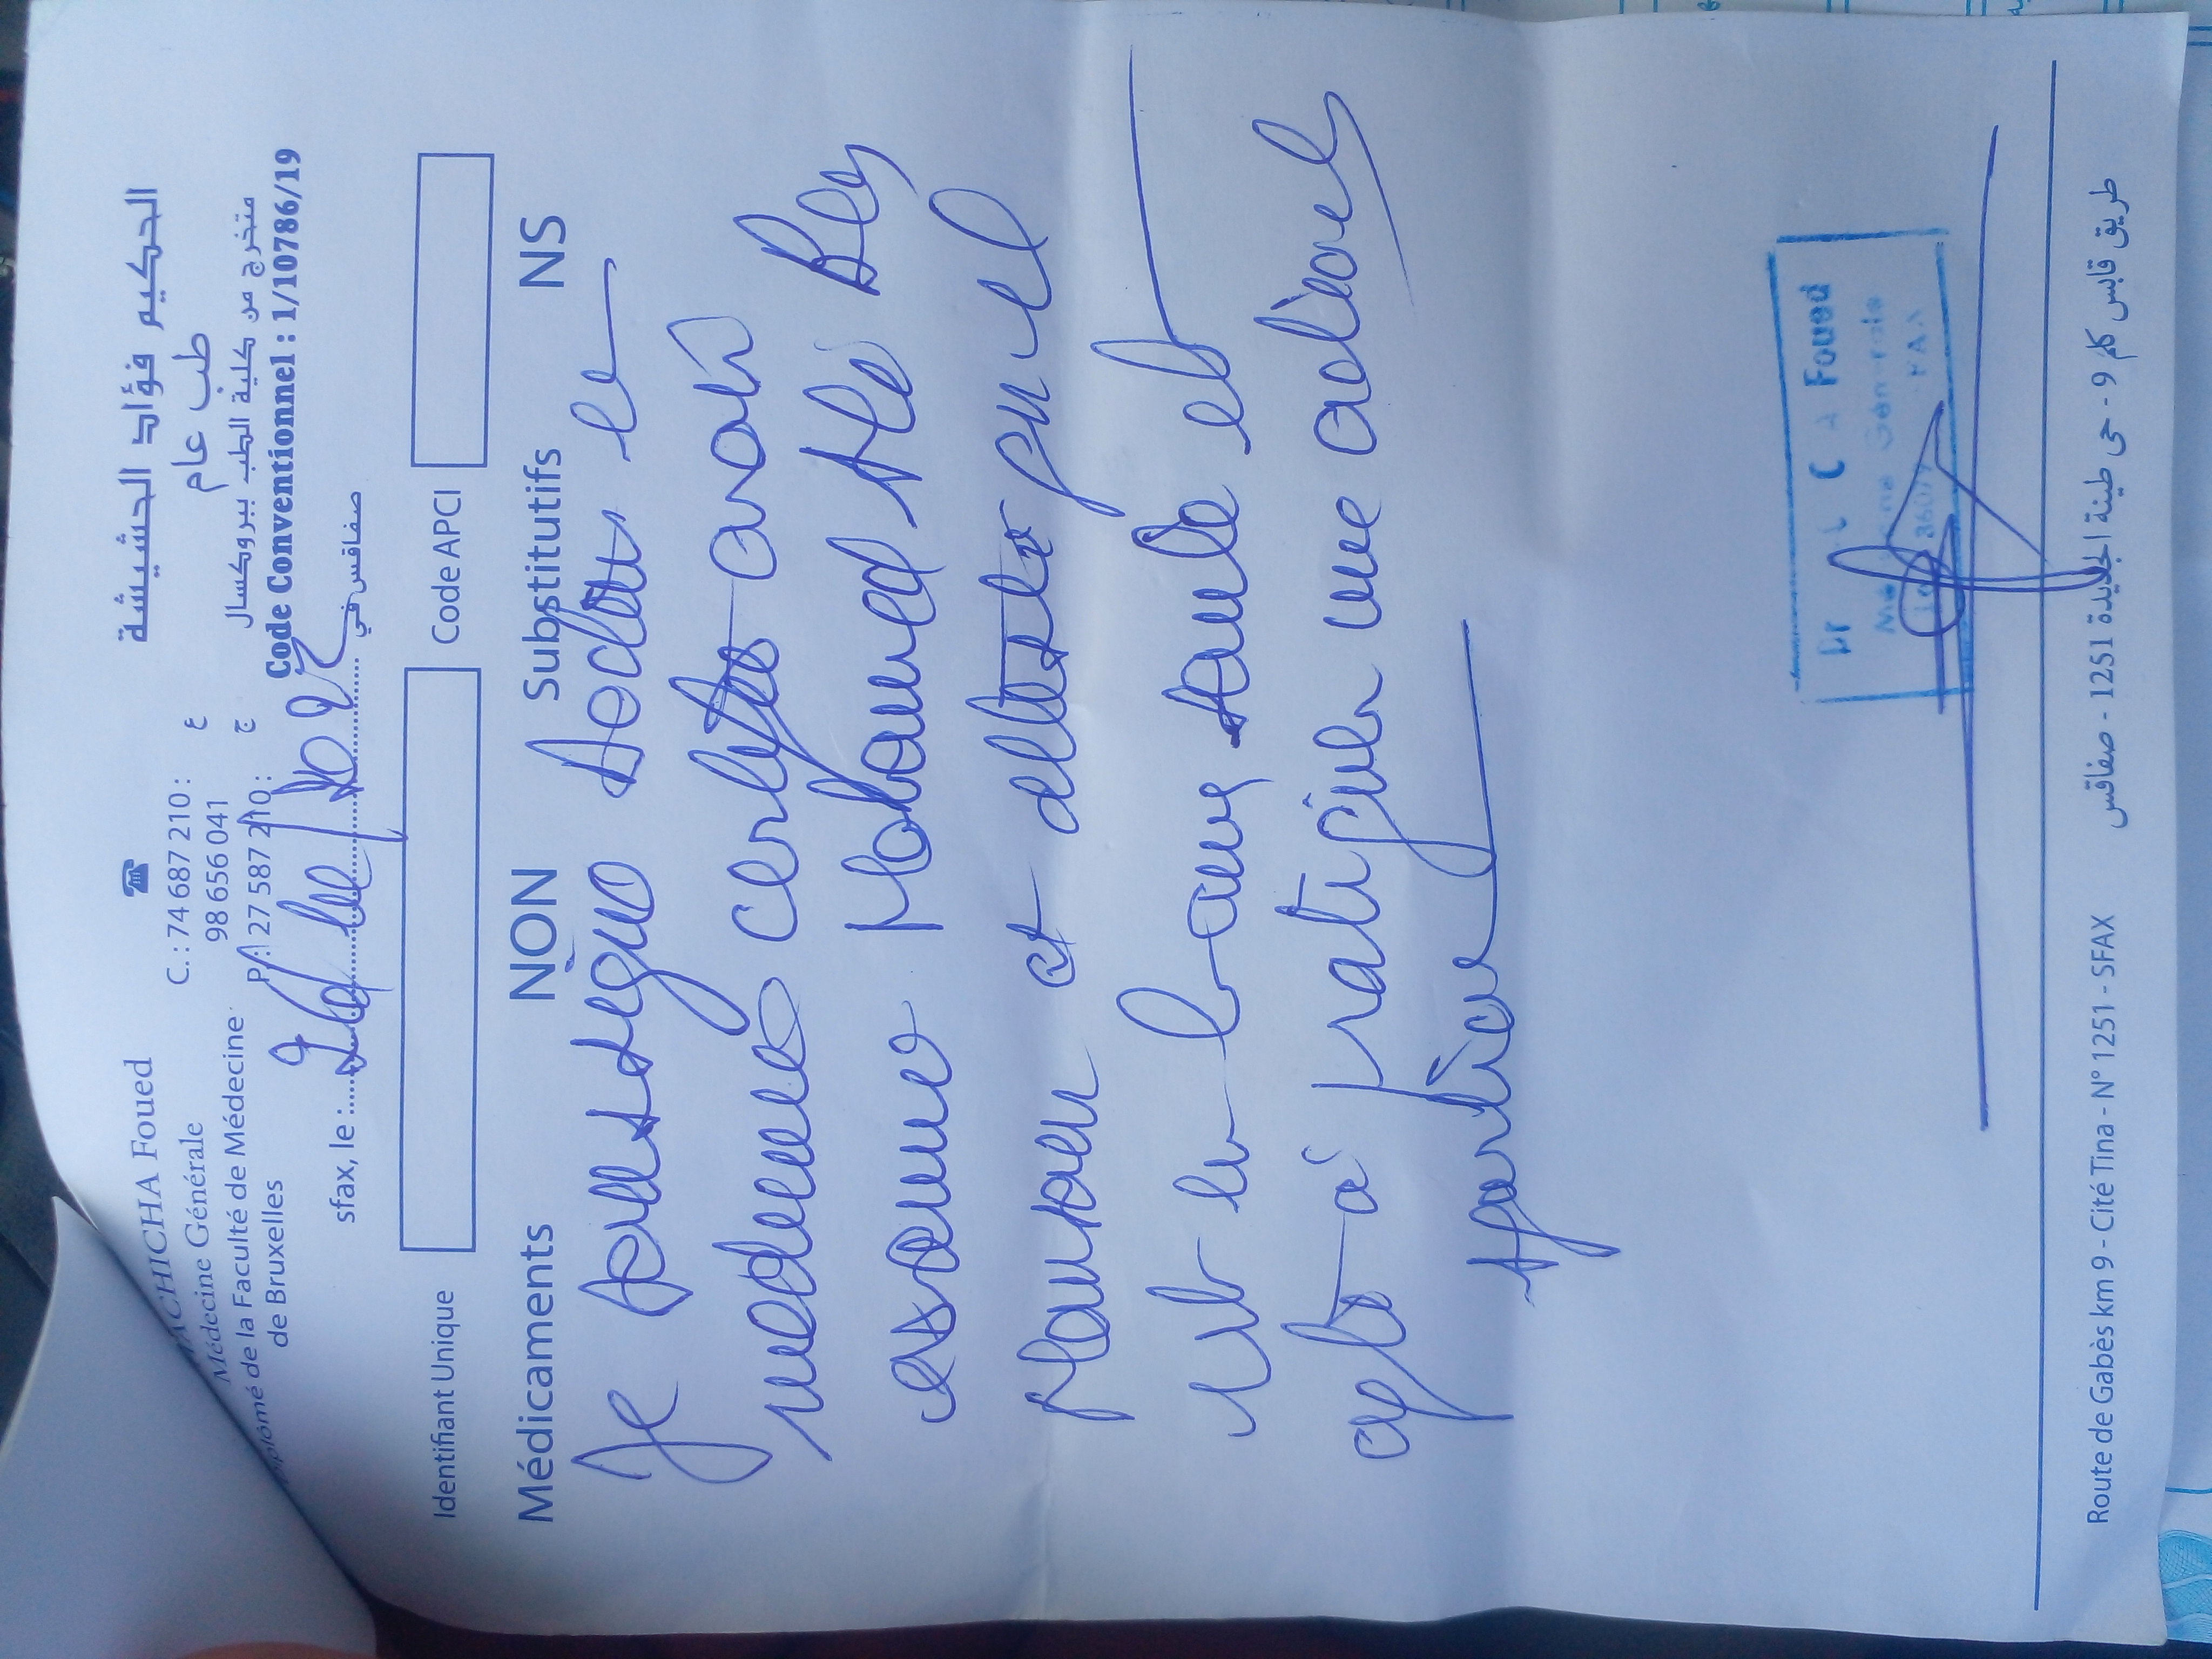 HACHICHA Foued
Médecine Générale
Diplômé de la Faculté de Médecine
de Bruxelles
☎
C. : 74 687 210 : ع
98 656 041
P : 27 587 210 : ج
الحكيم فؤاد الحشيشة
طب عام
متخرج من كلية الطب ببروكسال
Code Conventionnel : 1/10786/19
sfax, le : صفاقس في
Identifiant Unique
Code APCI
Médicaments NON Substitutifs NS
Je soussigné docteur en
médecine certifie avoir
examiné Mohamed Ali Ben
et atteste qu'il
est en bonne santé et
apte à pratiquer une activité
sportive
Dr Foued
Médecine Générale
Route de Gabès km 9 - Cité Tina - N° 1251 - SFAX
طريق قابس كلم 9 - حي طينة الجديدة 1251 - صفاقس